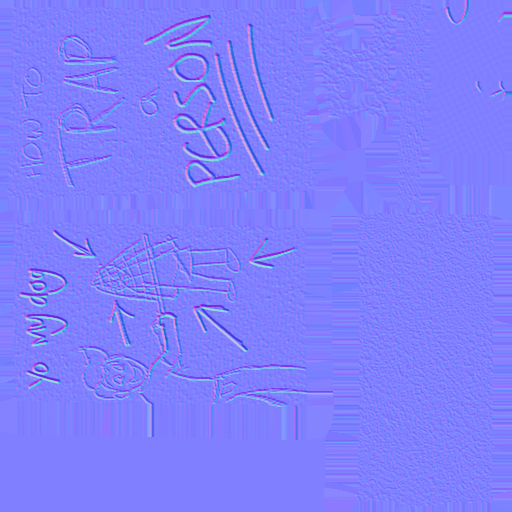 HOW TO
TRAP
a
PERSON
Yo my dog